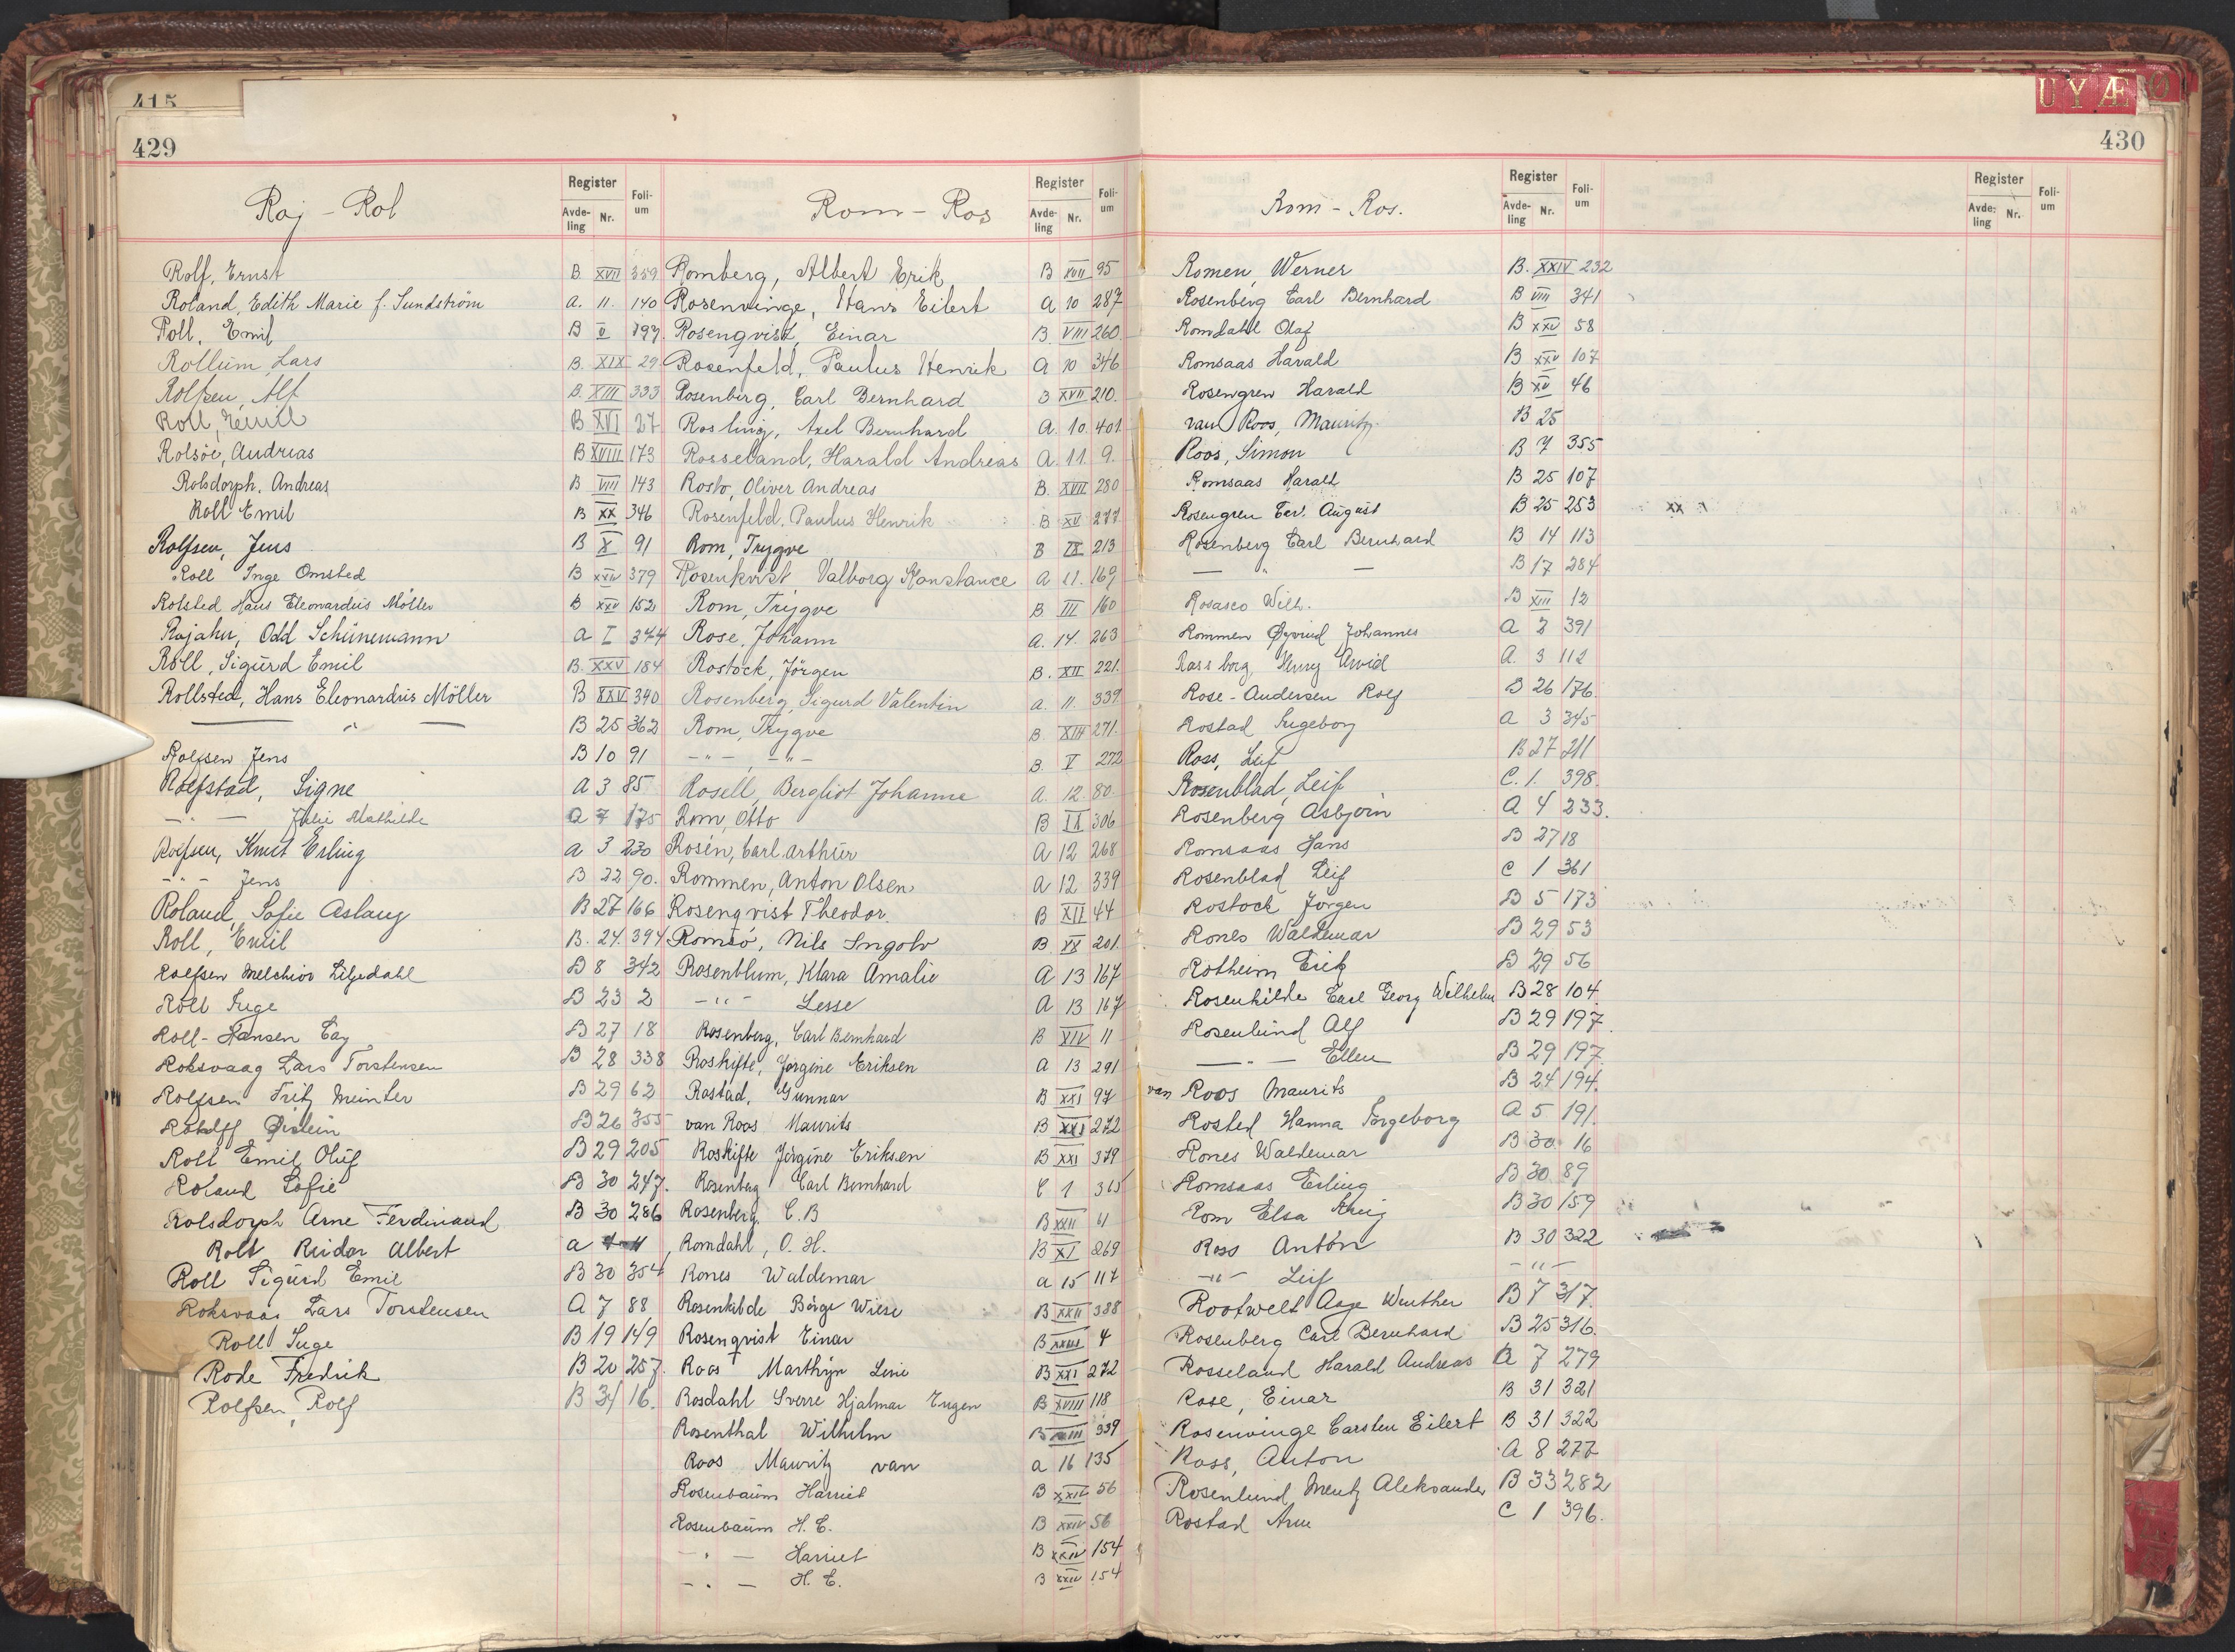 415
429
Raj - Rol
Register
Avde-ling Nr.
Foli-um
Rolf, Ernst B. XVII 359
Roland, Edith Marie f. Sundström a. 11. 140
Roll, Emil B V 197.
Rollum, Lars B. XIX 29
Rolfsen, Alf B. XIII 333
Roll, Emil B XVI 27
Rolsöe, Andreas B XVIII 173
Rolsdorph. Andreas B VIII 143
Roll Emil B XX 346
Rolfsen, Jens B X 91
Roll Inge Omsted B XXIV 379
Rolsted Hans Eleonardus Möller B XXV 152
Rojahn, Odd Schünemann a I 374
Roll, Sigurd Emil B. XXV 184
Rollsted, Hans Eleonardus Möller B XXV 340
— " — B 25 362
Rolfsen Jens B 10 91
Rolfstad, Signe A 3 85
— " — Julie Mathilde a 7 175
Rolfsen, Knut Erling a 3 230
— " — Jens B 22 90.
Roland, Sofie Aslaug B 27 166
Roll, Emil B. 24. 394
Rolfsen Melchior Liljedahl B 8 342
Roll Inge B 23 2
Roll-Hansen Cay B 27 18
Roksvaag Lars Torstensen B 28 338
Rolfsen Fritz Meinter B 29 62
Øistein B 26 355
Roll Emil Oluf B 29 205
Roland Sofie B 30 247.
Rolsdorph Arne Ferdinand B 30 286
Roll Reidar Albert a
Roll Sigurd Emil B 30 354
Roksvaag Lars Torstensen A 7 88
Roll Inge B 19 149
Rode Fredrik B 20 257.
Rolfsen, Rolf B 31 16.
Rom - Ros
Register
Avde-ling Nr.
Foli-um
Romberg, Albert Erik B XVII 95
Rosenvinge, Hans Eilert a 10 287
Rosenqvist, Einar B. VIII 260
Rosenfeld, Paulus Henrik a 10 346
Rosenberg, Carl Bernhard B XVII 210.
Rosling, Axel Bernhard a. 10. 401
Rosseland, Harald Andreas a. 11. 9.
Rosto, Oliver Andreas B. XVII 280
Rosenfeld, Paulus Henrik B XV 277
Rom, Trygve B IX 213
Rosenkvist Valborg Konstance a 11. 169
Rom, Trygve B. III 160
Rose, Johann a. 14. 263
Rostock, Jörgen B. XII 221.
Rosenberg, Sigurd Valentin a. 11. 339
Rom, Trygve B. XIII 271.
— " — , — " — B. V 272
Rosell, Bergliot Johanne a. 12. 80
Rom, Otto B IX 306
Rosén, Carl Arthur A 12 268
Rommen, Anton Olsen A 12 339
Rosenqvist Theodor. B XII 44
Romsö, Nils Ingolv B. XX 201.
Rosenblum, Klara Amalie A 13 167
— " — Lesse A 13 167
Rosenberg, Carl Bernhard B XIV 11
Roskifte, Jørgine Eriksen a 13 291
Rostad, Gunnar B XXI 97
van Roos Maurits B XXI 272
Roskifte Jørgine Eriksen B XXI 379
Rosenberg Carl Bernhard C 1 365
Rosenberg, C. B B XXII 4
Romdahl, O. H. B XI 269
Rones Waldemar a 15 117
Rosenkilde Börge Wiese B XXII 388
Rosenqvist Einar B XXIII 4
Roos Marthijn Leni B XXI 272
Rosdahl Sverre Hjalmar Eugen B XVIII 118
Rosenthal Wilhelm B 339
Roos Mauritz van a 16 135
Rosenbaum Harriet B XXIV 56
Rosenbaum H. C. B XXIV 56
— " — Harriet B XXIV 154
— " — H. C. B XXIV 154
U Y Æ Ø
430
Rom - Ros.
Register
Avde-ling Nr.
Foli-um
Register
Avde-ling Nr.
Foli-um
Romen, Werner B. XXIV 232
Rosenberg Carl Bernhard B VIII 341
Romdahl Olaf B XXV 58
Romsaas Harald B XXV 107
Rosengren Harald B XV 46
van Roos, Mauritz B 25
Roos, Simon B 7 355
Romsaas Harald B 25 107
Rosengren Carl August B 25 253 xx
Rosenberg Carl Bernhard B 14 113
— " — B 17 284
Rosasco Wilh. B XIII 12
Rommen Øyvind Johannes a 2 391
Rossborg, Henry Arvid a. 3 112
Rose-Andersen Rolf B 26 176
Rostad Ingeborg a 3 345
Ross, Leif B 27 211
Rosenblad, Leif C. 1. 398.
Rosenberg Asbjørn a 4 233.
Romsaas Hans B 27 18
Rosenblad Leif C 1 361
Rostock Jörgen B 5 173
Rones Waldemar B 29 53
Rotheim Erik B 29 56
Rosenkilde Carl Georg Wilhelm B 28 104.
Rosenlund Alf B 29 197.
— " — Ellen B 29 197.
van Roos Maurits B 24 194.
Rosted Hanna Ingeborg a 5 191.
Rones Waldemar B 30. 16
Romsaas Erling B 30 89
Rom Elsa Krug B 30 159
Ross Anton B 30 322
— " — Leif — " —
Rootwelt Aage Winther B 7 317.
Rosenberg Carl Bernhard B 25 316.
Rosseland Harald Andreas a 7 279
Rose, Einar B 31 321
Rosenvinge Carsten Eilert B 31 322
Ross, Anton a 8 277
Rosenlund Mentz Aleksander B 33 282
Rostad Arne C 1 396.